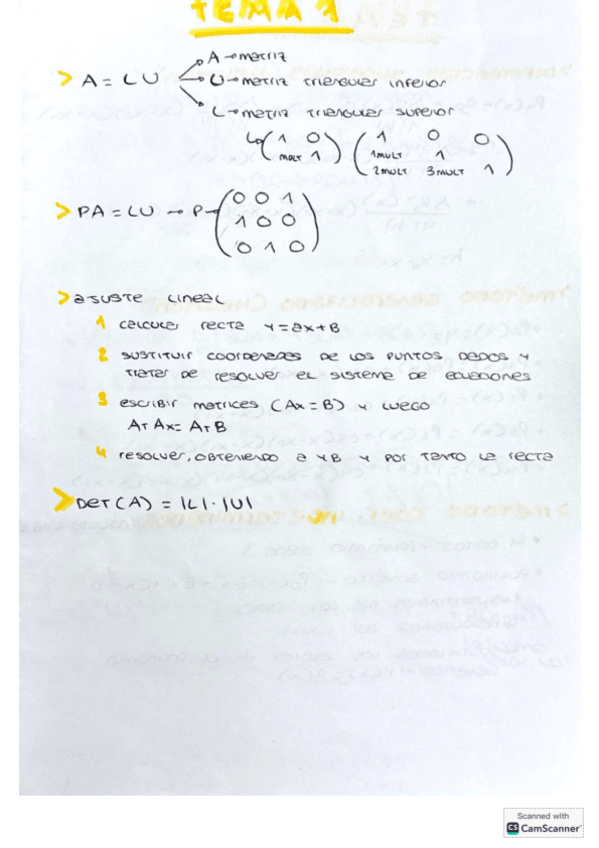 TEMA 1
> A = LU A → matriz
U → matriz triangular inferior
L → matriz triangular superior
( 1 0 ) ( 1 0 0 )
( mult 1 ) ( 1mult 1 )
( 2mult 3mult 1 )
> PA = LU → P → ( 0 0 1 )
( 1 0 0 )
( 0 1 0 )
> ajuste lineal
1 calcular recta y=ax+b
2 sustituir coordenadas de los puntos dados y
tratar de resolver el sistema de ecuaciones
3 escribir matrices (Ax=B) y luego
AT Ax= AT B
4 resolver, obteniendo a y B y por tanto la recta
> Det(A) = |L|·|U|
Scanned with
CS CamScanner